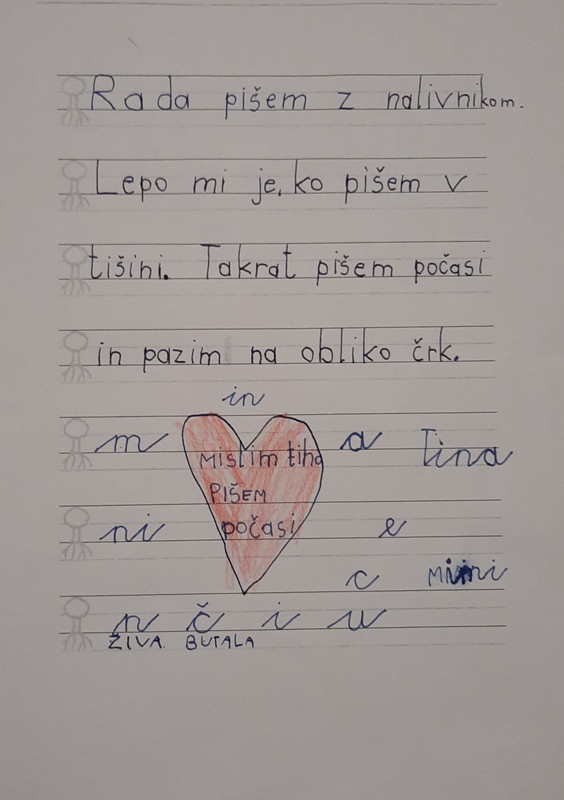 Rada pišem z nalivnikom.
Lepo mi je, ko pišem v
tišini. Takrat pišem počasi
in pazim na obliko črk.
in
m
a Tina
Mislim tiho
PIŠEM
počasi
ni
e
c Mimi
n č i u
ŽIVA BUTALA